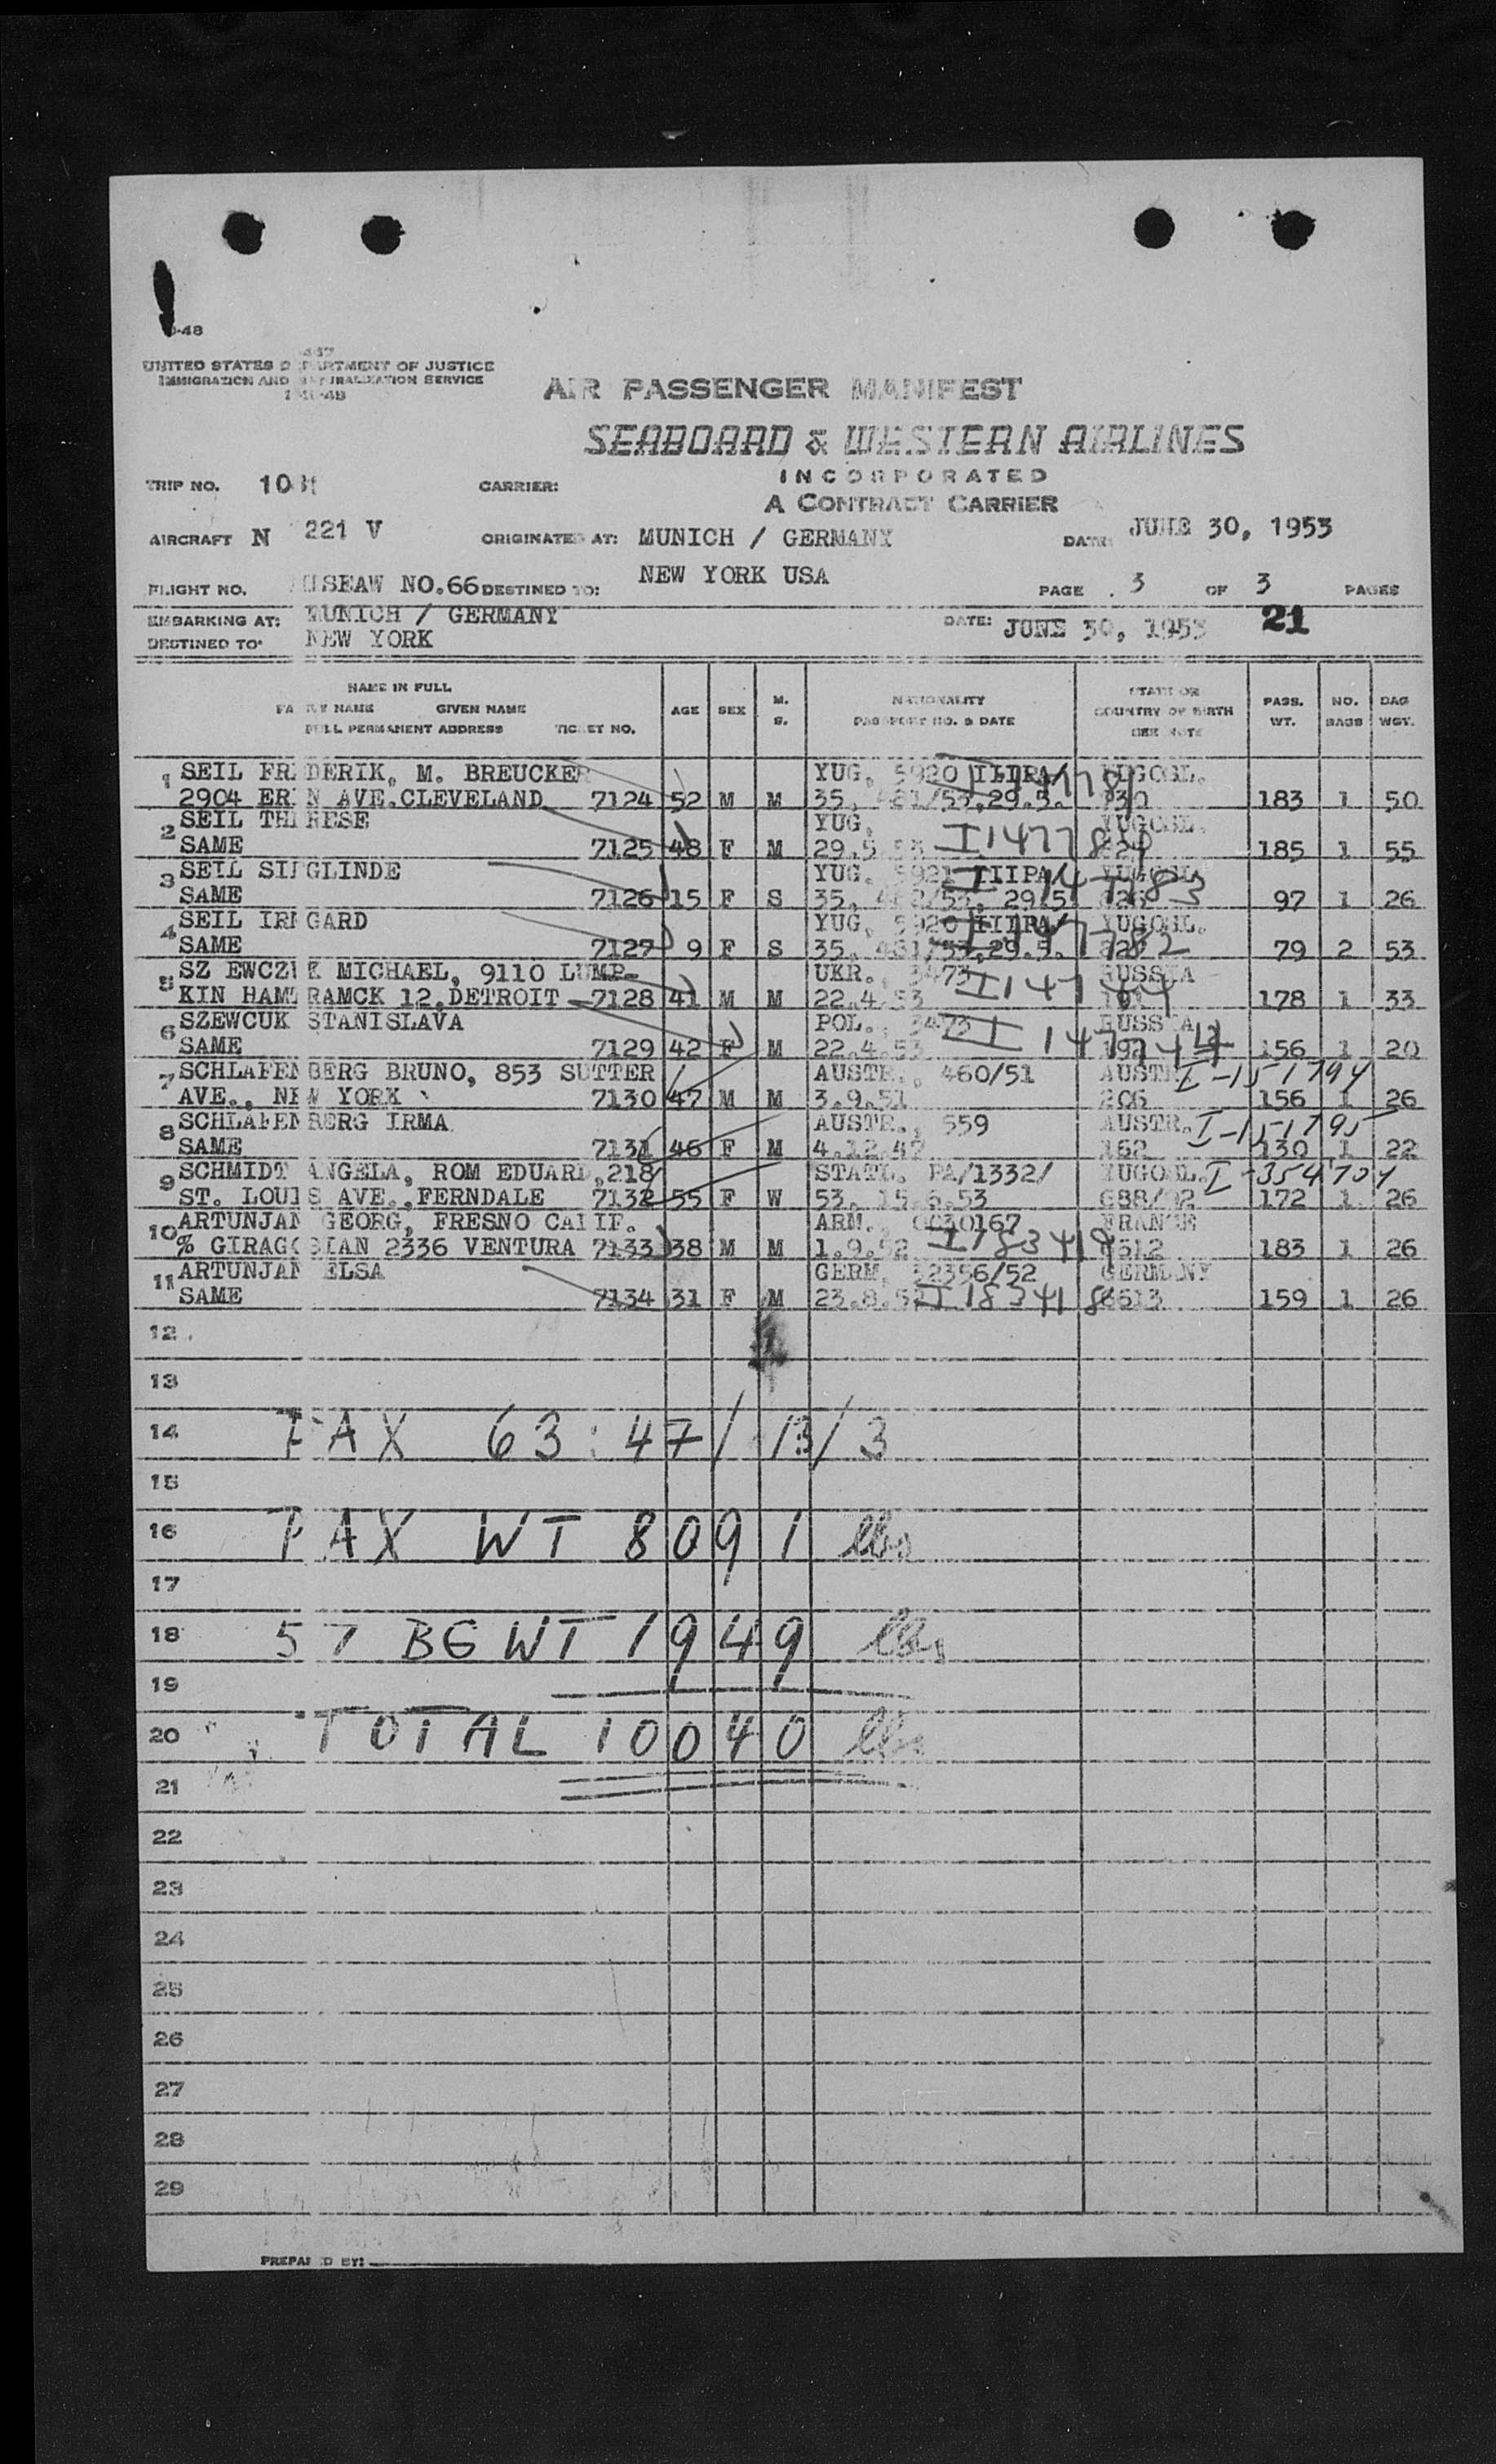 -48
UNITED STATES DEPARTMENT OF JUSTICE
IMMIGRATION AND NATURALIZATION SERVICE
AIR PASSENGER MANIFEST
SEABOARD & WESTERN AIRLINES
INCORPORATED
A CONTRACT CARRIER
TRIP NO. CARRIER:
AIRCRAFT N 221 V ORIGINATES AT: MUNICH / GERMANY DATE: JUNE 30, 1953
FLIGHT NO. USEAW NO.66 DESTINED TO: NEW YORK USA PAGE 3 OF 3 PAGES
EMBARKING AT: MUNICH / GERMANY DATE: JUNE 30, 1953 21
DESTINED TO: NEW YORK
NAME IN FULL
FAMILY NAME GIVEN NAME
FULL PERMANENT ADDRESS TICKET NO. AGE SEX M. S. NATIONALITY PASSPORT NO. & DATE STATE OR COUNTRY OF BIRTH SEE NOTE PASS. WT. NO. BAGS BAG WGT.
1 SEIL FREDERIK, M. BREUCKER YUG. 5920 YUGOSL.
2904 ERIN AVE. CLEVELAND 7124 52 M M 35, 29.5. 183 1 50
2 SEIL THERESE YUG. YUGOSL.
SAME 7125 48 F M 29.5.53 185 1 55
3 SEIL SIEGLINDE YUG. 5921 YUGOSL.
SAME 7126 15 F S 35, 29.5 97 1 26
4 SEIL IRMGARD YUG. 5920 YUGOSL.
SAME 7127 9 F S 35, 29.5. I1477782 79 2 53
5 SZEWCZUK MICHAEL, 9110 LUMP- UKR., 3473 RUSSIA
KIN HAMTRAMCK 12, DETROIT 7128 41 M M 22.4.53 178 1 33
6 SZEWCUK STANISLAVA POL., 3473 RUSSIA
SAME 7129 42 F M 22.4.53 156 1 20
7 SCHLAFENBERG BRUNO, 853 SUTTER AUSTR., 460/51 AUSTR. I-151794
AVE., NEW YORK 7130 47 M M 3.9.51 206 156 1 26
8 SCHLAFENBERG IRMA AUSTR., 559 AUSTR. I-151795
SAME 7131 46 F M 4.12.47 162 130 1 22
9 SCHMIDT ANGELA, ROM EDUARD, 218 STATL. PA/1332/ YUGOSL. I-354704
ST. LOUIS AVE., FERNDALE 7132 55 F W 53, 15.6.53 688/92 172 1 26
10 ARTUNJAN GEORG, FRESNO CALIF. ARM., 0030167 FRANCE
% GIRAGOSIAN 2336 VENTURA 7133 38 M M 1.9.52 I183419 183 1 26
11 ARTUNJAN ELSA GERM, 32356/52 GERMANY
SAME 7134 31 F M 23.8.52 I183418 6613 159 1 26
12
13
14 PAX 63: 47/13/3
15
16 PAX WT 8091 lbs
17
18 57 BG WT 1949 lbs
19
20 TOTAL 10040 lbs
21
22
23
24
25
26
27
28
29
PREPARED BY: